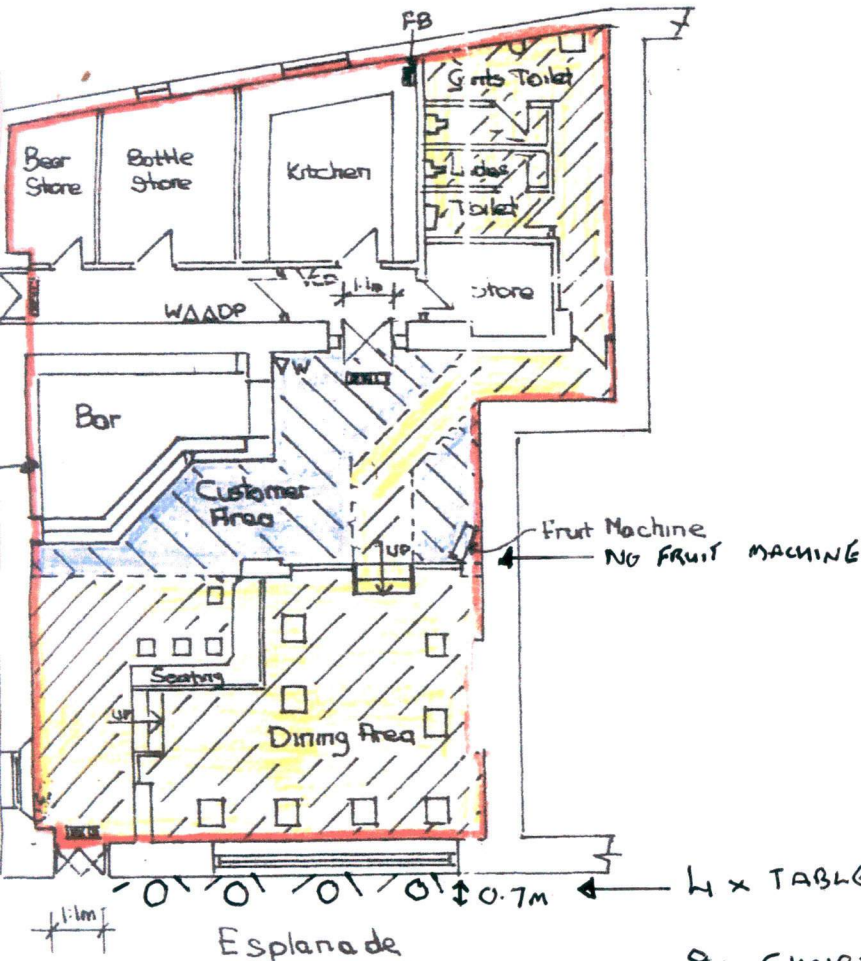 FB
Gents Toilet
Beer
Store
Bottle
Store
Kitchen
Ladies
Toilet
1.1m
Store
W
DP
W
Bar
Customer
Area
UP
Fruit Machine
NO FRUIT MACHINE
Seating
UP
Dining Area
0.7M
4 x TABLE
1.1m
Esplanade